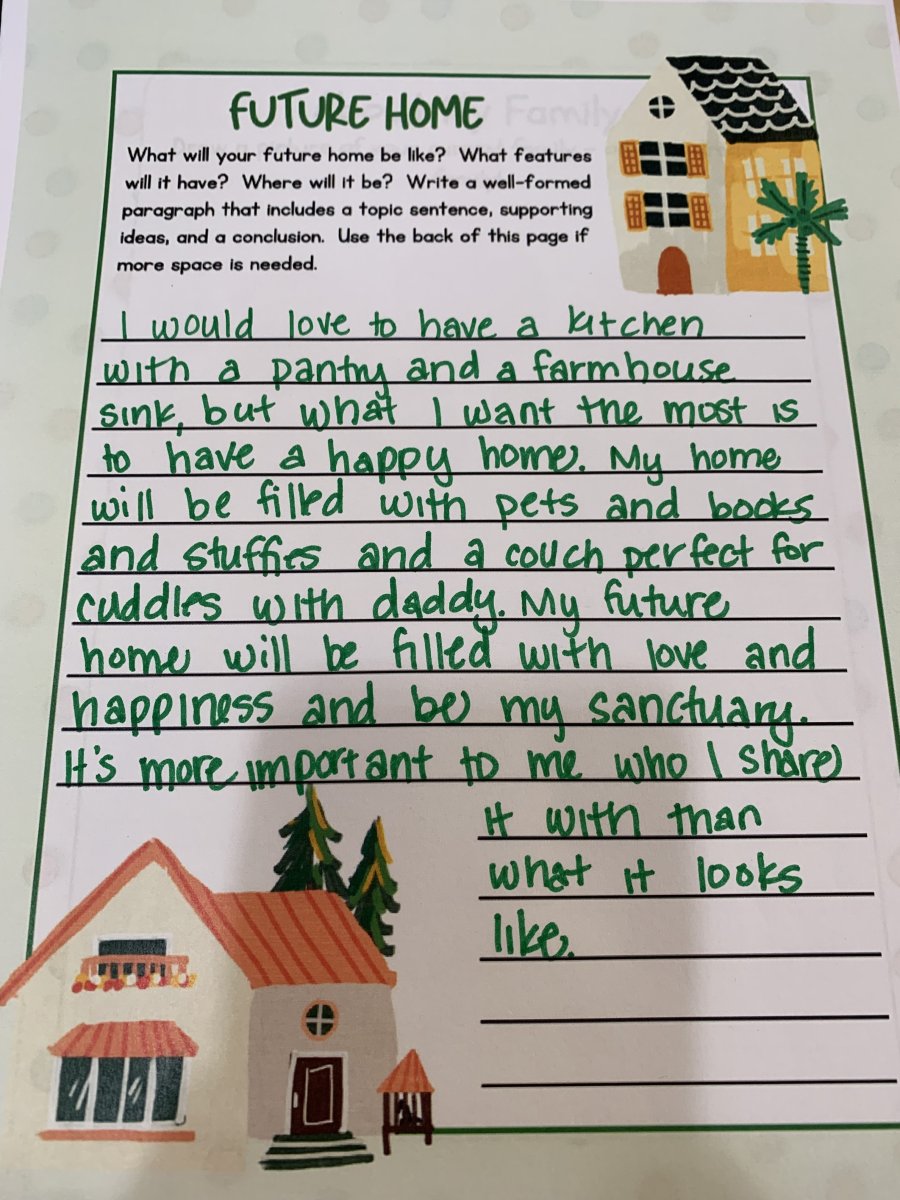 FUTURE HOME
What will your future home be like? What features
will it have? Where will it be? Write a well-formed
paragraph that includes a topic sentence, supporting
ideas, and a conclusion. Use the back of this page if
more space is needed.
I would love to have a kitchen
with a pantry and a farmhouse
sink, but what I want the most is
to have a happy home. My home
will be filled with pets and books
and stuffies and a couch perfect for
cuddles with daddy. My future
home will be filled with love and
happiness and be my sanctuary.
It's more important to me who I share
it with than
what it looks
like.